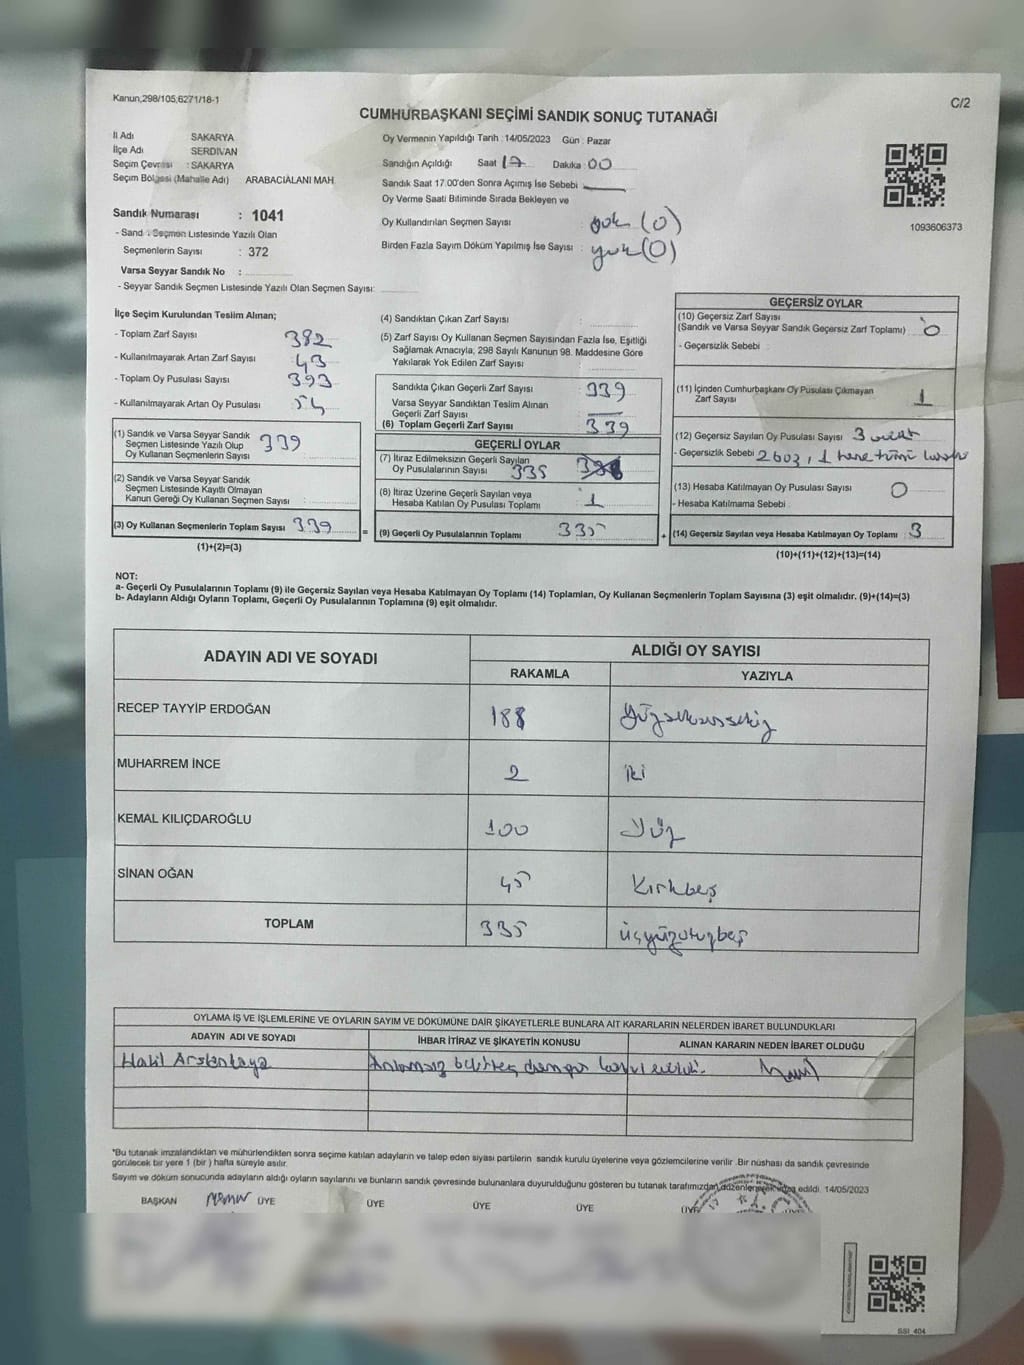 Kanun,298/105,6271/18-1
C/2
CUMHURBAŞKANI SEÇİMİ SANDIK SONUÇ TUTANAĞI
İl Adı SAKARYA
İlçe Adı SERDİVAN
Seçim Çevresi : SAKARYA
Seçim Bölgesi (Mahalle Adı) ARABACIALANI MAH
Sandık Numarası : 1041
- Sand Seçmen Listesinde Yazılı Olan
Seçmenlerin Sayısı : 372
Varsa Seyyar Sandık No :
- Seyyar Sandık Seçmen Listesinde Yazılı Olan Seçmen Sayısı:
Oy Vermenin Yapıldığı Tarih : 14/05/2023 Gün : Pazar
Sandığın Açıldığı Saat 17 Dakika : 00
Sandık Saat 17.00'den Sonra Açımış İse Sebebi
Oy Verme Saati Bitiminde Sırada Bekleyen ve
Oy Kullandırılan Seçmen Sayısı : yok (0)
Birden Fazla Sayım Döküm Yapılmış İse Sayısı : yok (0)
1093606373
İlçe Seçim Kurulundan Teslim Alınan;
- Toplam Zarf Sayısı 382
- Kullanılmayarak Artan Zarf Sayısı 43
- Toplam Oy Pusulası Sayısı 393
- Kullanılmayarak Artan Oy Pusulası 54
(1) Sandık ve Varsa Seyyar Sandık
Seçmen Listesinde Yazılı Olup
Oy Kullanan Seçmenlerin Sayısı 339
(2) Sandık ve Varsa Seyyar Sandık
Seçmen Listesinde Kayıtlı Olmayan
Kanun Gereği Oy Kullanan Seçmen Sayısı :
(3) Oy Kullanan Seçmenlerin Toplam Sayısı 339
(1)+(2)=(3)
=
(4) Sandıktan Çıkan Zarf Sayısı :
(5) Zarf Sayısı Oy Kullanan Seçmen Sayısından Fazla İse, Eşitliği
Sağlamak Amacıyla, 298 Sayılı Kanunun 98. Maddesine Göre
Yakılarak Yok Edilen Zarf Sayısı :
Sandıkta Çıkan Geçerli Zarf Sayısı : 339
Varsa Seyyar Sandıktan Teslim Alınan
Geçerli Zarf Sayısı :
(6) Toplam Geçerli Zarf Sayısı : 339
GEÇERLİ OYLAR
(7) İtiraz Edilmeksizin Geçerli Sayılan
Oy Pusulalarının Sayısı 335
(8) İtiraz Üzerine Geçerli Sayılan veya
Hesaba Katılan Oy Pusulası Toplamı : 1
(9) Geçerli Oy Pusulalarının Toplamı 335
+
GEÇERSİZ OYLAR
(10) Geçersiz Zarf Sayısı
(Sandık ve Varsa Seyyar Sandık Geçersiz Zarf Toplamı) : 0
- Geçersizlik Sebebi :
(11) İçinden Cumhurbaşkanı Oy Pusulası Çıkmayan
Zarf Sayısı 1
(12) Geçersiz Sayılan Oy Pusulası Sayısı : 3
- Geçersizlik Sebebi 1 tane
(13) Hesaba Katılmayan Oy Pusulası Sayısı : 0
- Hesaba Katılmama Sebebi :
(14) Geçersiz Sayılan veya Hesaba Katılmayan Oy Toplamı : 3
(10)+(11)+(12)+(13)=(14)
NOT:
a- Geçerli Oy Pusulalarının Toplamı (9) ile Geçersiz Sayılan veya Hesaba Katılmayan Oy Toplamı (14) Toplamları, Oy Kullanan Seçmenlerin Toplam Sayısına (3) eşit olmalıdır. (9)+(14)=(3)
b- Adayların Aldığı Oyların Toplamı, Geçerli Oy Pusulalarının Toplamına (9) eşit olmalıdır.
ADAYIN ADI VE SOYADI ALDIĞI OY SAYISI
RAKAMLA YAZIYLA
RECEP TAYYİP ERDOĞAN 188 Yüzseksensekiz
MUHARREM İNCE 2 iki
KEMAL KILIÇDAROĞLU 100 Yüz
SİNAN OĞAN 45 Kırkbeş
TOPLAM 335 üçyüzotuzbeş
OYLAMA İŞ VE İŞLEMLERİNE VE OYLARIN SAYIM VE DÖKÜMÜNE DAİR ŞİKAYETLERLE BUNLARA AİT KARARLARIN NELERDEN İBARET BULUNDUKLARI
ADAYIN ADI VE SOYADI İHBAR İTİRAZ VE ŞİKAYETİN KONUSU ALINAN KARARIN NEDEN İBARET OLDUĞU
Halil
*Bu tutanak imzalandıktan ve mühürlendikten sonra seçime katılan adayların ve talep eden siyasi partilerin sandık kurulu üyelerine veya gözlemcilerine verilir .Bir nüshası da sandık çevresinde
görülecek bir yere 1 (bir ) hafta süreyle asılır.
Sayım ve döküm sonucunda adayların aldığı oyların sayılarını ve bunların sandık çevresinde bulunanlara duyurulduğunu gösteren bu tutanak tarafımızdan düzenlenerek imza edildi. 14/05/2023
BAŞKAN ÜYE ÜYE ÜYE ÜYE ÜYE
SSI_404